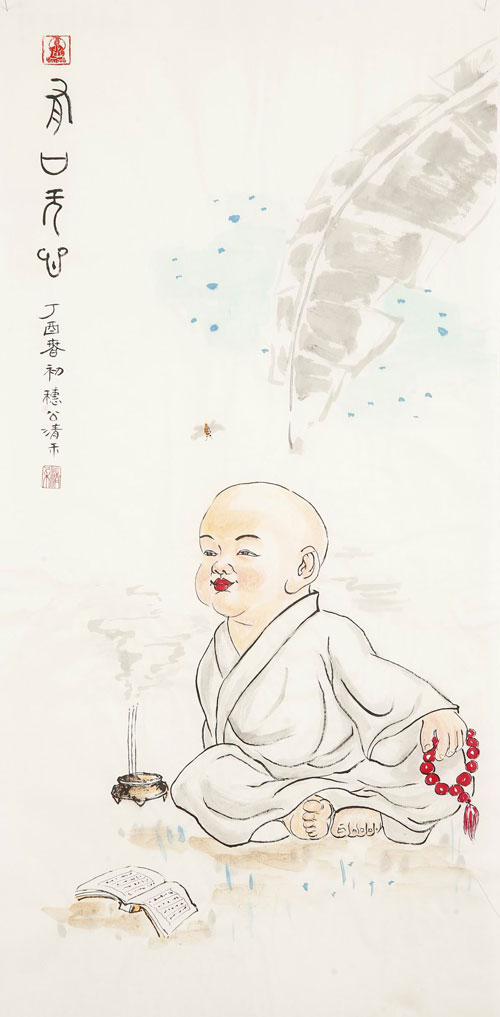 有口无心
丁酉春初穗公清